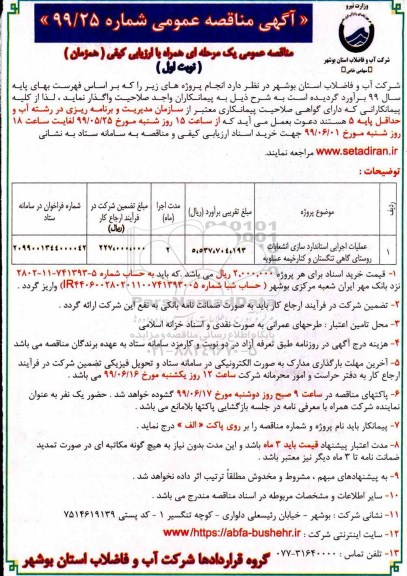 وزارت نیرو
شرکت آب و فاضلاب استان بوشهر
(سهامی خاص)
« آگهی مناقصه عمومی شماره ۹۹/۲۵ »
مناقصه عمومی یک مرحله ای همراه با ارزیابی کیفی ( همزمان )
( نوبت اول )
شرکت آب و فاضلاب استان بوشهر در نظر دارد انجام پروژه های زیر را که بر اساس فهرست بهای پایه
سال ۹۹ برآورد گردیده است به شرح ذیل به پیمانکاران واجد صلاحیت واگذار نماید ، لذا از کلیه
پیمانکارانی که دارای گواهی صلاحیت پیمانکاری معتبر از سازمان مدیریت و برنامه ریزی در رشته آب و
حداقل پایه ۵ هستند دعوت بعمل می آید که از ساعت ۱۵ روز شنبه مورخ ۹۹/۰۵/۲۵ لغایت ساعت ۱۸
روز شنبه مورخ ۹۹/۰۶/۰۱ جهت خرید اسناد ارزیابی کیفی و مناقصه به سامانه ستاد به نشانی
www.setadiran.ir مراجعه نمایند.
توضیحات :
ردیف | موضوع پروژه | مبلغ تقریبی برآورد (ریال) | مدت اجرا (ماه) | مبلغ تضمین شرکت در فرآیند ارجاع کار (ریال) | شماره فراخوان در سامانه ستاد
۱ | عملیات اجرایی استاندارد سازی انشعابات روستای گاهی تنگستان و کنارخیمه عسلویه | ۵،۵۳۷،۷۰۴،۱۹۳ | ۲ | ۲۲۷،۰۰۰،۰۰۰ | ۲۰۹۹۰۰۱۳۴۴۰۰۰۰۴۲
۱- قیمت خرید اسناد برای هر پروژه ۲،۰۰۰،۰۰۰ ریال می باشد .که باید به حساب شماره ۵-۷۴۱۳۹۳-۱۱-۲۸۰۲
نزد بانک مهر ایران شعبه مرکزی بوشهر ( حساب شبا شماره IR۴۴۰۶۰۰۲۸۰۲۰۱۱۰۰۷۴۱۳۹۳۰۰۵) واریز گردد .
۲- تضمین شرکت در فرآیند ارجاع کار باید به صورت ضمانت نامه بانکی به نفع این شرکت ارائه گردد .
۳- محل تامین اعتبار : طرحهای عمرانی به صورت نقدی و اسناد خزانه اسلامی
۴- هزینه درج آگهی در روزنامه طبق تعرفه آزاد در دو نوبت و کارمزد سامانه ستاد به عهده برندگان مناقصه می باشد
۵- آخرین مهلت بارگذاری مدارک به صورت الکترونیکی در سامانه ستاد و تحویل فیزیکی تضمین شرکت در فرآیند
ارجاع کار به دفتر حراست و امور محرمانه شرکت ساعت ۱۲ روز یکشنبه مورخ ۹۹/۰۶/۱۶ می باشد .
۶- پاکتهای مناقصه در ساعت ۹ صبح روز دوشنبه مورخ ۹۹/۰۶/۱۷ گشوده خواهد شد . حضور یک نفر به عنوان
نماینده شرکت همراه با معرفی نامه در جلسه بازگشایی پاکتها بلامانع می باشد .
۷- پیمانکار باید نام پروژه و شماره مناقصه را بر روی پاکت « الف » درج نماید .
۸- مدت اعتبار پیشنهاد قیمت باید ۳ ماه باشد و این مدت بدون نیاز به هیچ گونه مکاتبه ای در صورت تمدید
ضمانت نامه تا ۳ ماه دیگر نیز معتبر باشد.
۹- به پیشنهادهای مبهم ، مشروط و مخدوش مطلقاً ترتیب اثر داده نخواهد شد .
۱۰- سایر اطلاعات و مشخصات مربوطه در اسناد مناقصه مندرج می باشد .
۱۱- نشانی شرکت : بوشهر - خیابان رئیسعلی دلواری - کوچه تنگسیر ۱ - کد پستی ۷۵۱۴۶۱۹۱۳۹
۱۲- سایت اینترنتی شرکت : https://abfa-bushehr.ir/www
۱۳- تلفن تماس : ۳۱۶۴۰۰۰۰-۰۷۷
گروه قراردادها شرکت آب و فاضلاب استان بوشهر